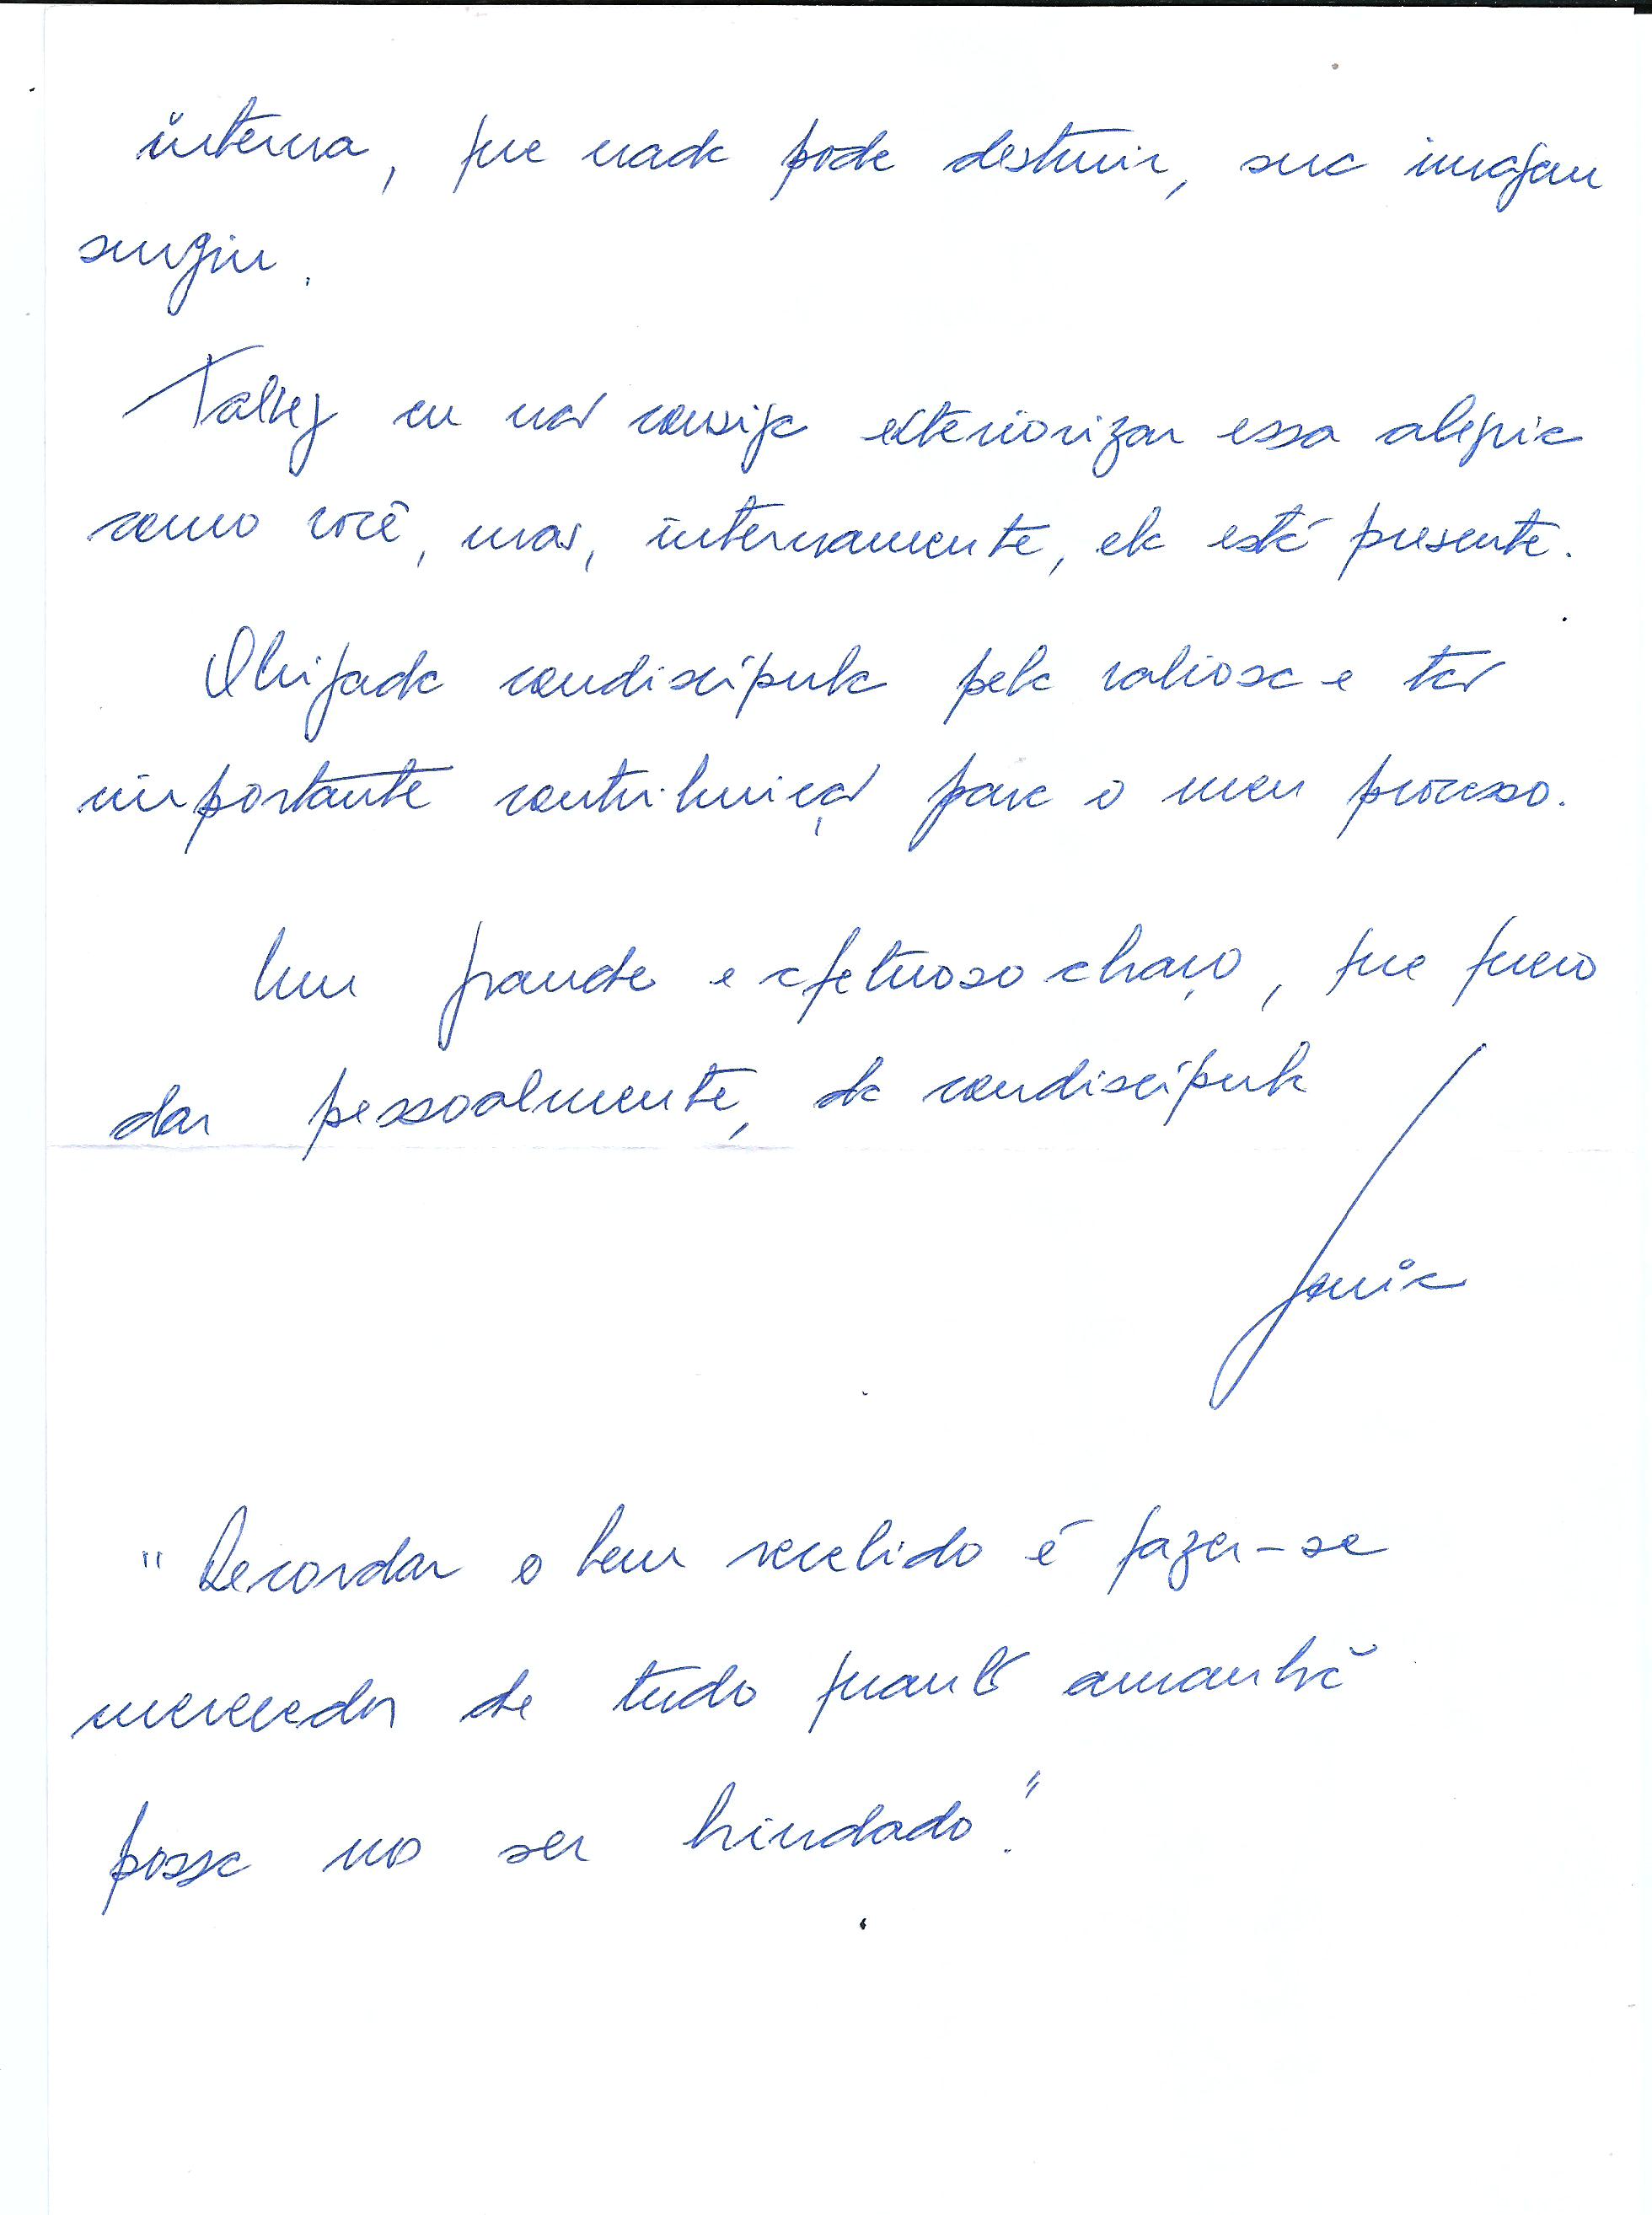 interna, que nada pode destruir, sua imagem
surgiu.
Talvez eu não consiga exteriorizar essa alegria
como você, mas, internamente, ela está presente.
Obrigada condiscípula pela valiosa e tão
importante contribuição para o meu processo.
Um grande e afetuoso abraço, que quero
dar pessoalmente, da condiscípula
Sonia
"Recordar o bem recebido é fazer-se
merecedor de tudo quanto amanhã
possa nos ser brindado".